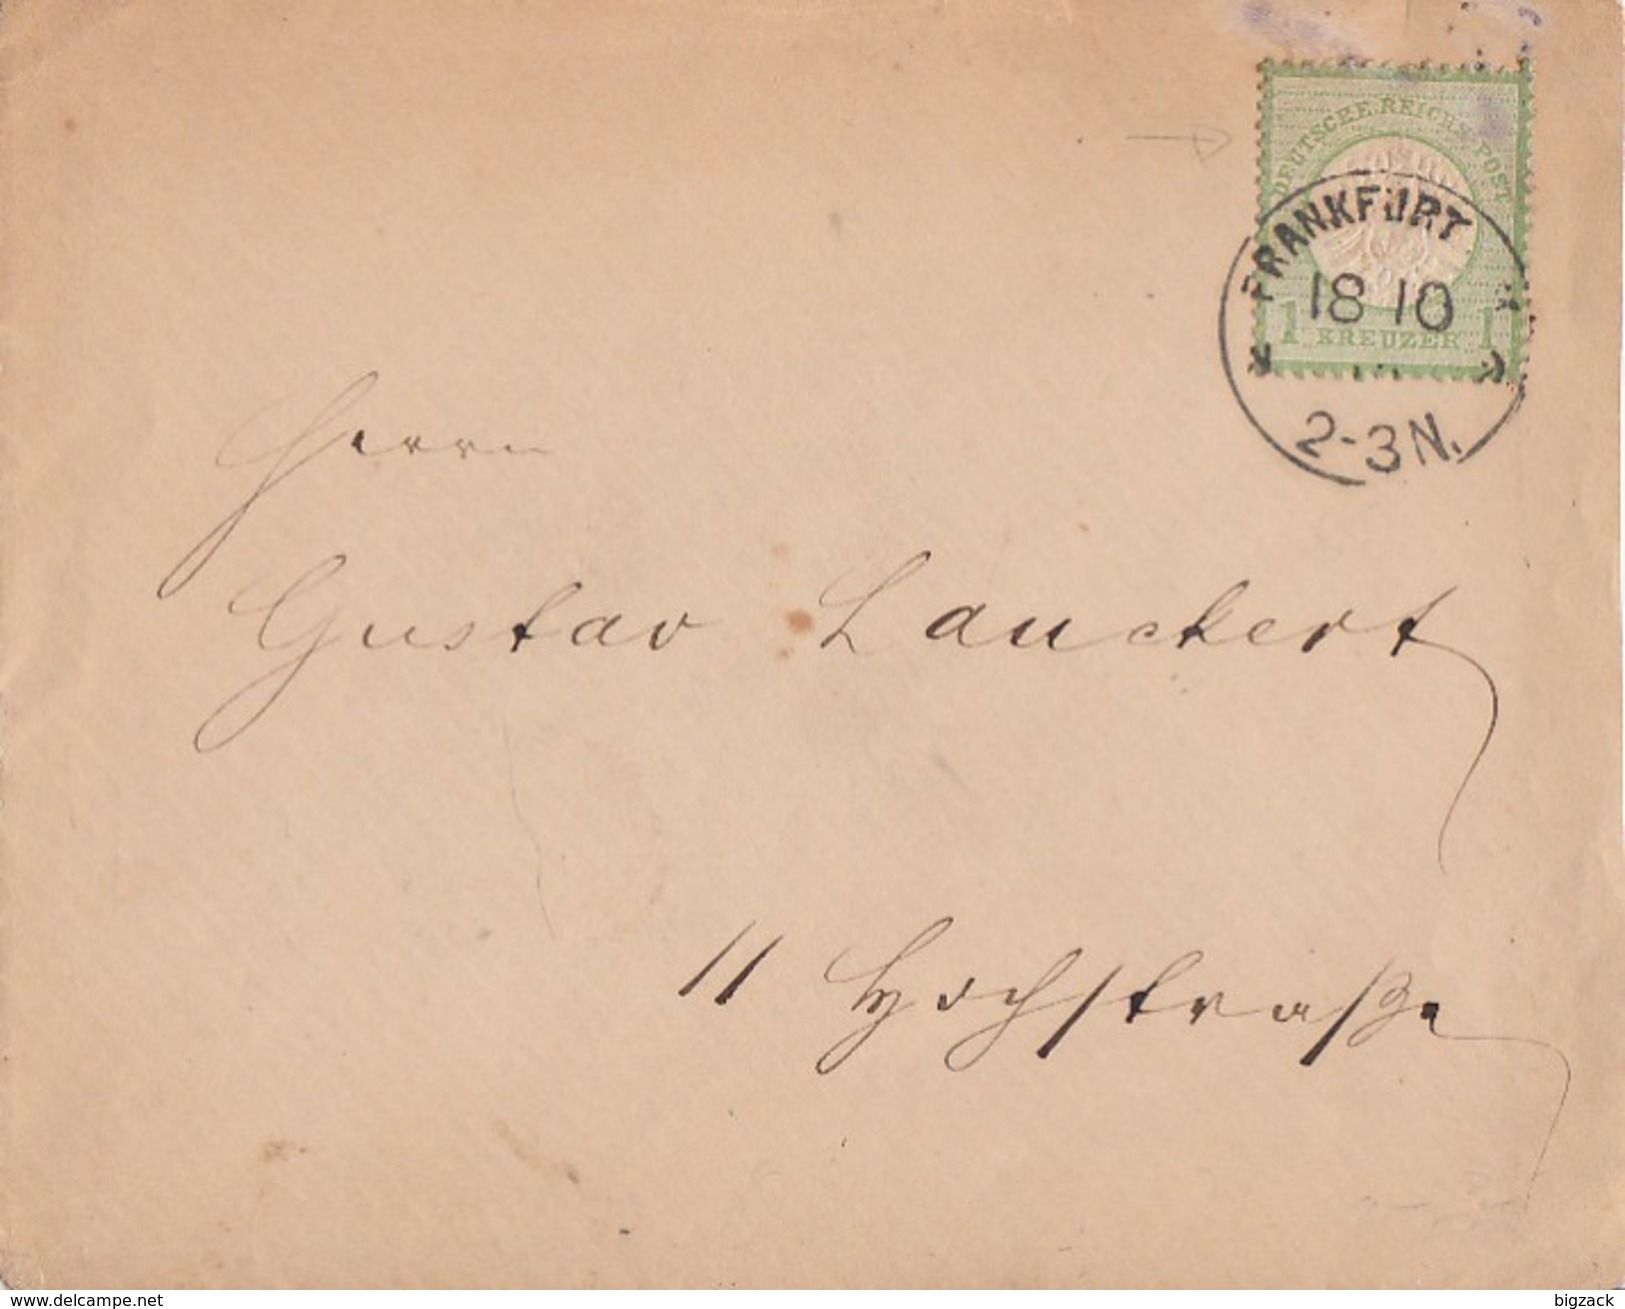 DEUTSCHE REICHS-POST
1 KREUZER 1
FRANKFURT
18 10
2-3 N.
Herrn
Gustav Lauckert
11 Hochstraße
delcampe.net
bigzack